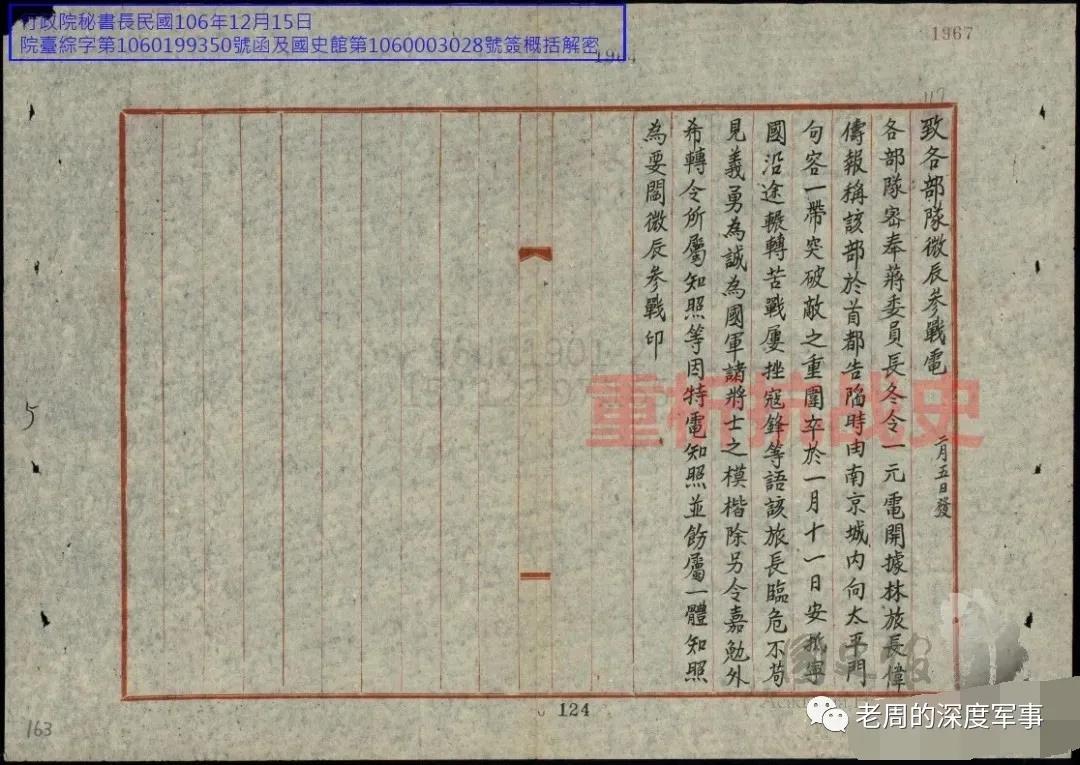 行政院秘書長民國106年12月15日
院臺綜字第1060199350號函及國史館第1060003028號簽概括解密
1967
117
致各部隊微辰參戰電 二月五日發
各部隊密奉蔣委員長冬令一元電開據林旅長偉
儔報稱該部於首都告陷時由南京城内向太平門
句容一帶突破敵之重圍卒於一月十一日安抵寧
國沿途輾轉苦戰屢挫寇鋒等語該旅長臨危不苟
見義勇為誠為國軍諸將士之模楷除另令嘉勉外
希轉令所屬知照等因特電知照並飭屬一體知照
為要閻微辰參戰印
5
163
124
重析抗战史
國史館
老周的深度军事